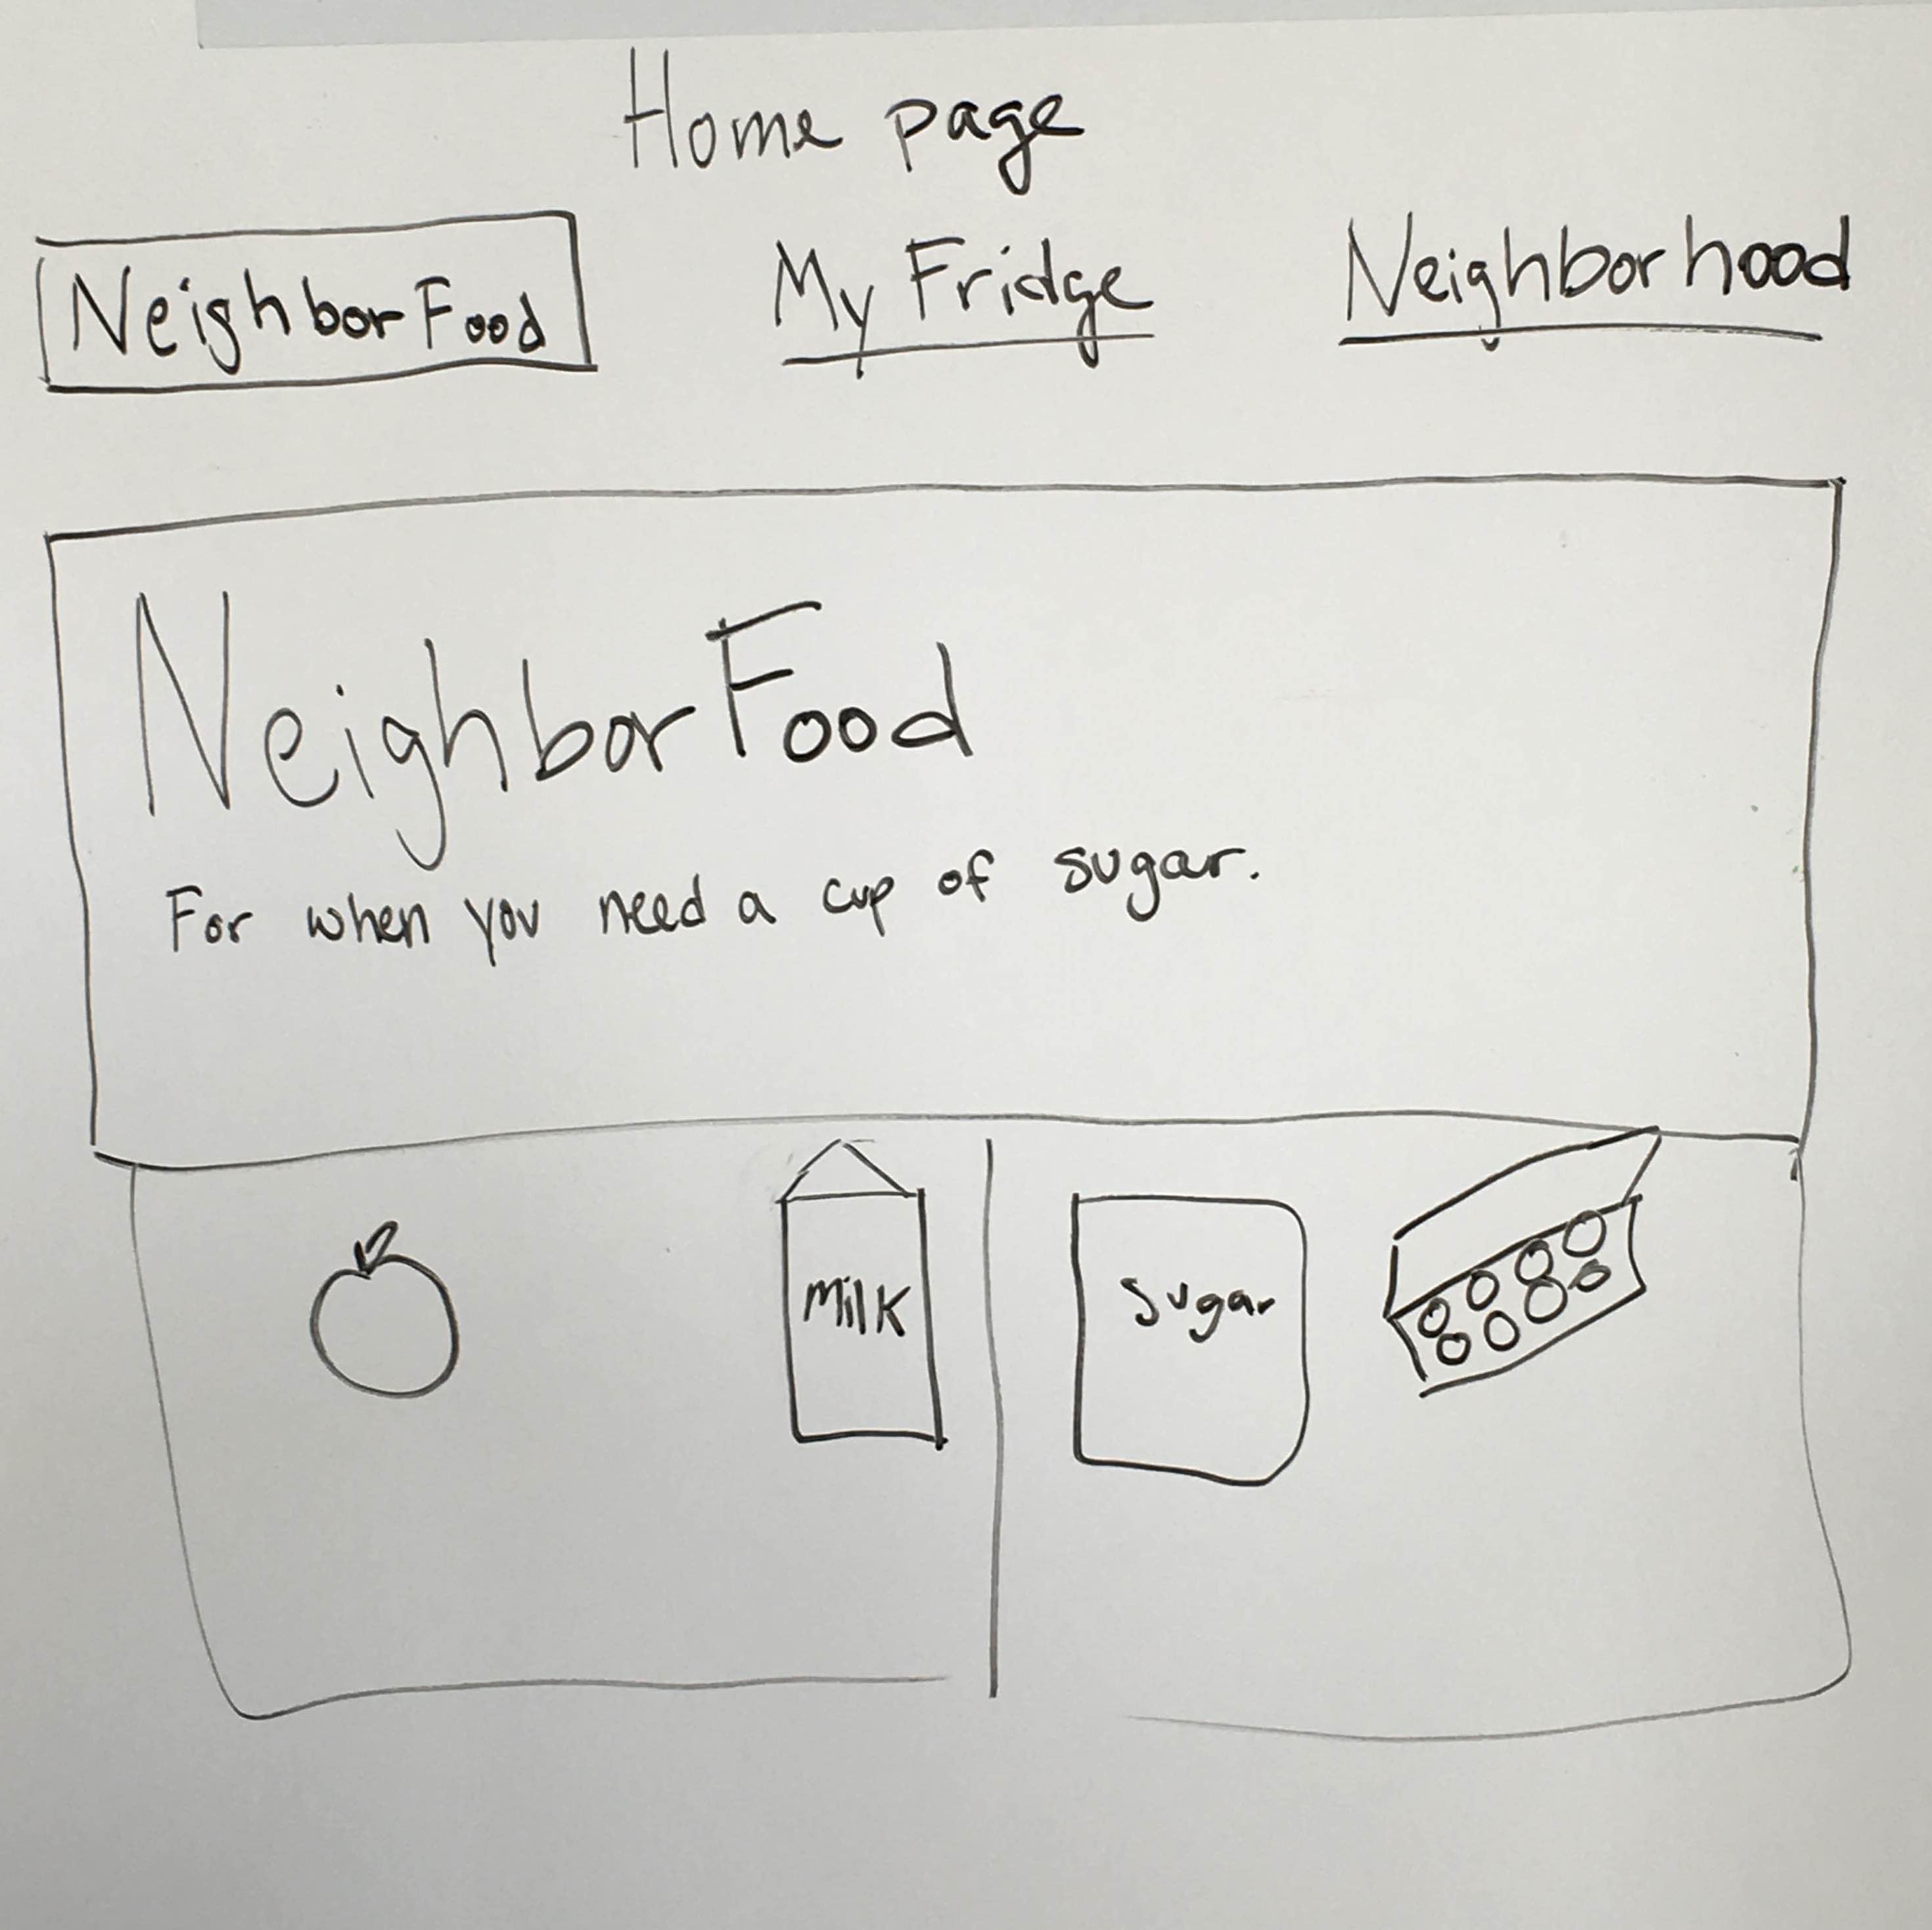 Home page
NeighborFood
My Fridge
Neighborhood
NeighborFood
For when you need a cup of sugar.
Milk
Sugar